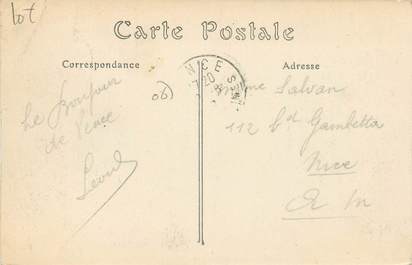 lot
Carte Postale
Correspondance
Adresse
NICE
20
06)
Le Bonjour
de Vence
Mme Salvan
112 bd Gambetta
Nice
A M